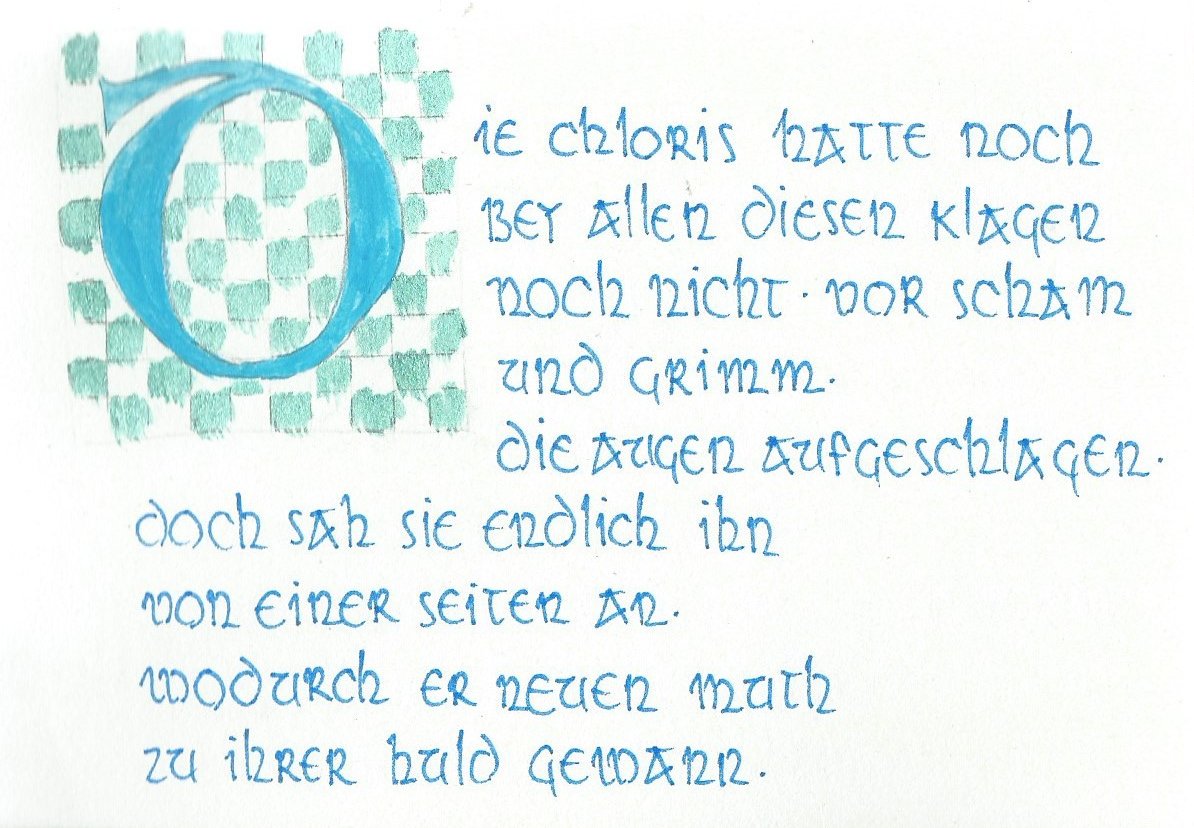 Die Chloris hatte noch
bey allen diesen Klagen
noch nicht · vor Scham
und Grimm ·
die Augen aufgeschlagen ·
doch sah sie endlich ihn
von einer Seiten an ·
wodurch er neuen Muth
zu ihrer Huld gewann ·